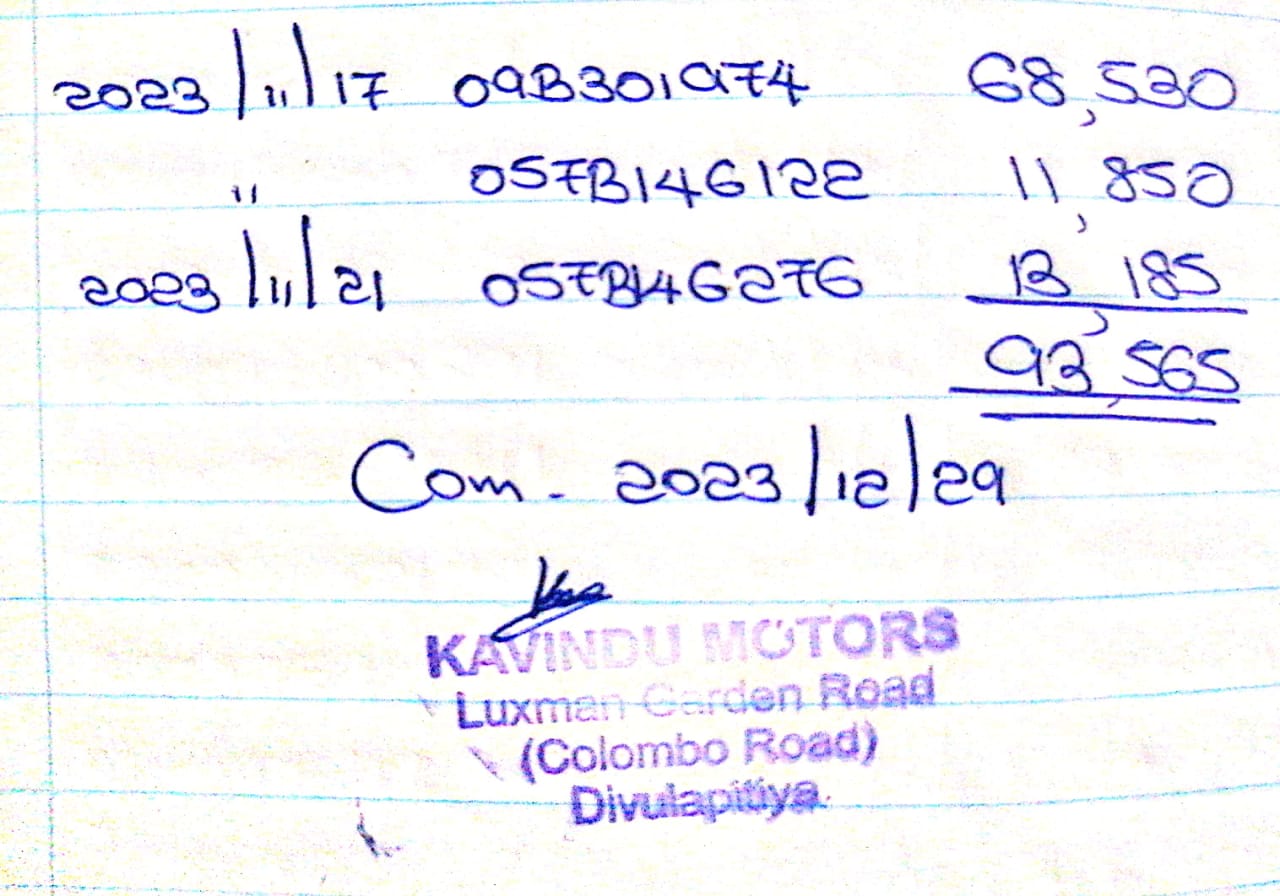 2023/11/17 09B301974 68,530
" 057B146122 11,850
2023/11/21 057B146276 13,185
93,565
Com. 2023/12/29
KAVINDU MOTORS
Luxman Garden Road
(Colombo Road)
Divulapitiya.